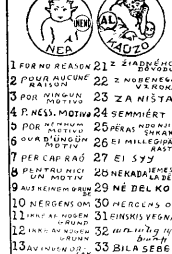 AMEN
AL
NEA
KAOZO
1 FOR NO REASON
2 POUR AUCUNE
RAISON
3 POR NINGUN
MOTIVO
4 P. NESS. MOTIVO
5 POR NENHUM
MOTIVO
6
7 PER CAP RAÓ
8 PENTRU NICI
UN MOTIV
9 AUS KEINEM GRUN
DE
10 NERGENS OM
11
GRUND
12
GRUNN
13 AV INGEN
21 Z ŽIADNÉHO
DÔVODU
22 Z NOBENEGA
VZROKA
23 ZA NIŠTA
24 SEMMIÉRT
25 PËRAS
26 EI MILLEGIPÄ
RAST
27 EI SYY
28 NEKADA
29 NÉ DEL KO
30 NERGENS OM
31 EINSKIS VEGNA
32
33 BILA SEBE